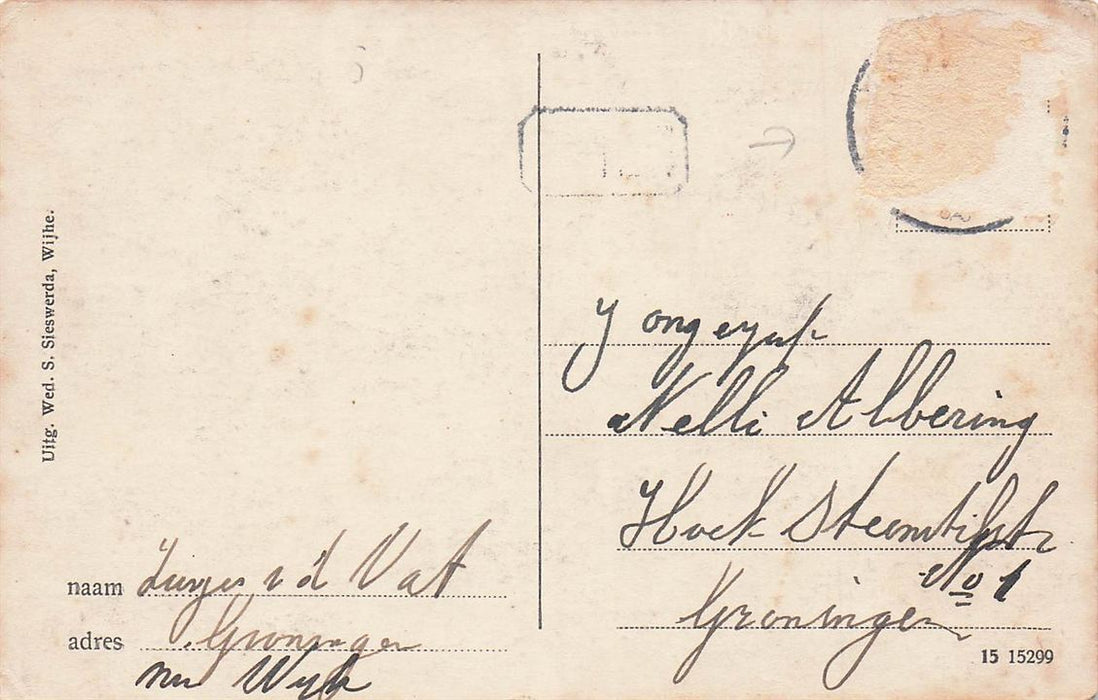 Uitg. Wed. S. Sieswerda, Wijhe.
Nelli Albering
Hoek
No 1
Groningen
naam v d Vat
adres Groningen
nu Wyh
15 15299